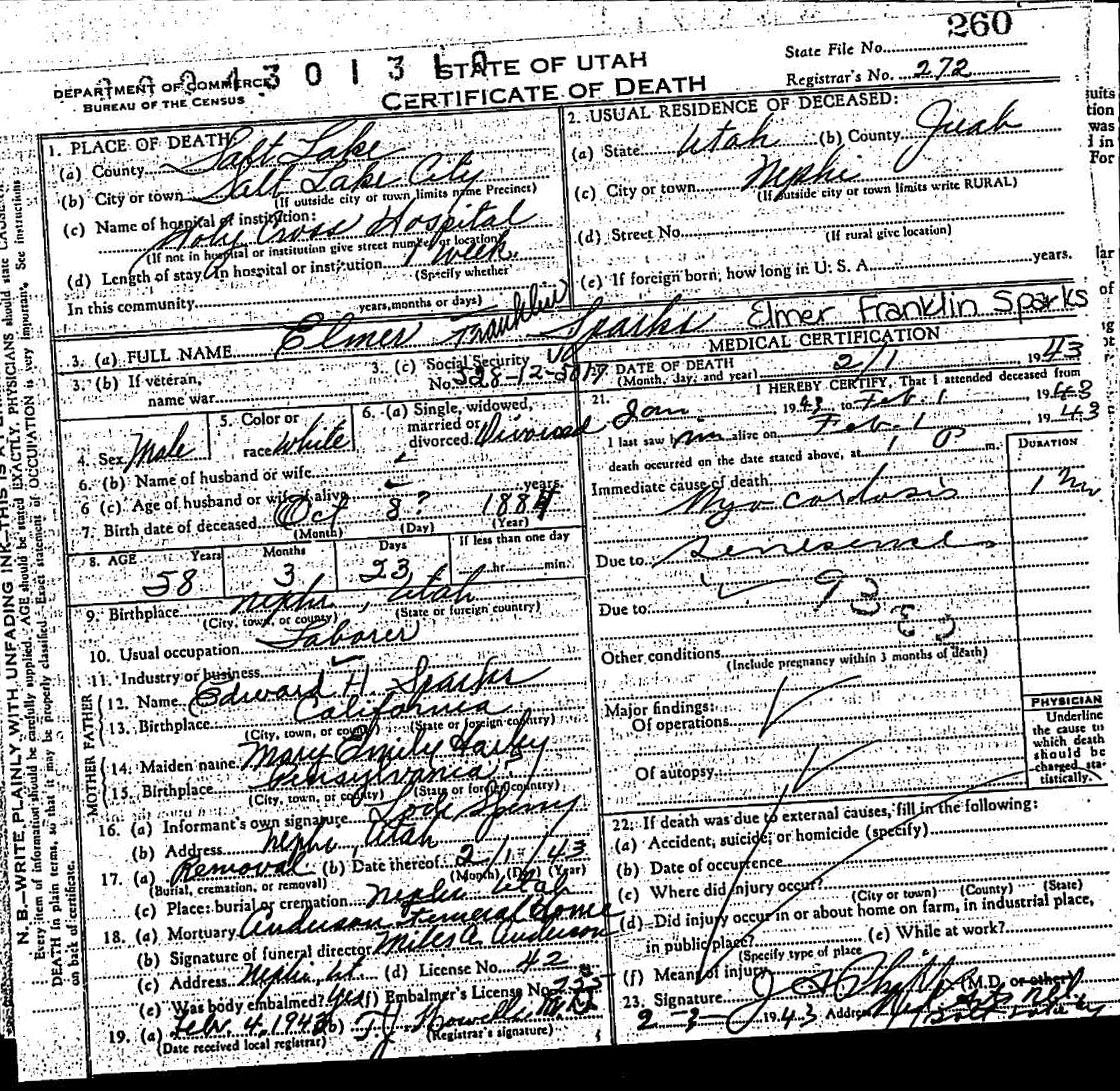 260
State File No.
DEPARTMENT OF COMMERCE
BUREAU OF THE CENSUS
STATE OF UTAH
CERTIFICATE OF DEATH
Registrar's No. 272
1. PLACE OF DEATH:
(a) County Salt Lake
(b) City or town Salt Lake City
(If outside city or town limits name Precinct)
(c) Name of hospital or institution:
Holy Cross Hospital
(If not in hospital or institution give street number or location)
(d) Length of stay. In hospital or institution 1 Week
(Specify whether
In this community
years, months or days)
2. USUAL RESIDENCE OF DECEASED:
(a) State Utah (b) County Juab
(c) City or town Nephi
(If outside city or town limits write RURAL)
(d) Street No.
(If rural give location)
(e) If foreign born, how long in U. S. A. years.
3. (a) FULL NAME Elmer Franklin Sparks Elmer Franklin Sparks
3. (b) If veteran,
name war
3. (c) Social Security
No.
4. Sex Male
5. Color or
race White
6. (a) Single, widowed,
married or
divorced. Divorced
6. (b) Name of husband or wife
6 (c) Age of husband or wife if alive years.
7. Birth date of deceased Oct 8? 1884
(Month) (Day) (Year)
8. AGE Years Months Days If less than one day
58 3 23 hr. min.
9. Birthplace Nephi, Utah
(City, town, or county) (State or foreign country)
10. Usual occupation Laborer
11. Industry or business
FATHER
12. Name Edward H. Sparks
13. Birthplace California
(City, town, or county) (State or foreign country)
MOTHER
14. Maiden name Mary Emily Harley
15. Birthplace Pensylvania?
(City, town, or county) (State or foreign country)
16. (a) Informant's own signature
(b) Address Nephi, Utah
17. (a) Removal (b) Date thereof 2/1/43
(Burial, cremation, or removal) (Month) (Day) (Year)
(c) Place: burial or cremation Nephi Utah
18. (a) Mortuary Anderson Funeral Home
(b) Signature of funeral director Miles A. Anderson
(c) Address Nephi, Ut. (d) License No. 42
(e) Was body embalmed? Yes (f) Embalmer's License No.
19. (a) Feb. 4, 1943 (b)
(Date received local registrar) (Registrar's signature)
MEDICAL CERTIFICATION
DATE OF DEATH 2/1 1943
(Month, day, and year)
21. I HEREBY CERTIFY, That I attended deceased from
Jan 1943 to Feb 1 1943
I last saw him alive on Feb. 1 1943
death occurred on the date stated above, at 1 P m.
DURATION
Immediate cause of death
Myocardosis
Due to
Due to
93
Other conditions
(Include pregnancy within 3 months of death)
Major findings:
Of operations
Of autopsy
PHYSICIAN
Underline
the cause to
which death
should be
charged sta-
tistically.
22. If death was due to external causes, fill in the following:
(a) Accident, suicide, or homicide (specify)
(b) Date of occurence
(c) Where did injury occur?
(City or town) (County) (State)
(d) Did injury occur in or about home on farm, in industrial place,
in public place? (e) While at work?
(Specify type of place
(f) Means of injury
23. Signature (M.D. or other)
2-3- 1943 Address
N. B.—WRITE PLAINLY WITH UNFADING INK—THIS IS A
Every item of information should be carefully supplied. AGE should be stated EXACTLY. PHYSICIANS should state CAUSE
DEATH in plain terms, so that it may be properly classified. Exact statement of OCCUPATION is very important. See instructions
on back of certificate.